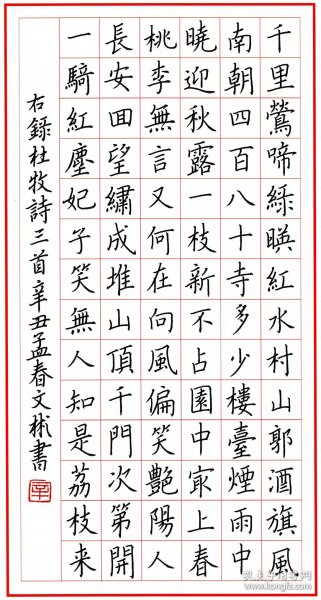 千里鶯啼綠暎紅水村山郭酒旗風
南朝四百八十寺多少樓臺煙雨中
曉迎秋露一枝新不占園中㝡上春
桃李無言又何在向風偏笑艷陽人
長安囬望繡成堆山頂千門次第開
一騎紅塵妃子笑無人知是荔枝来
右錄杜牧詩三首辛丑孟春文彬書
孔夫子旧书网
www.kongfz.com